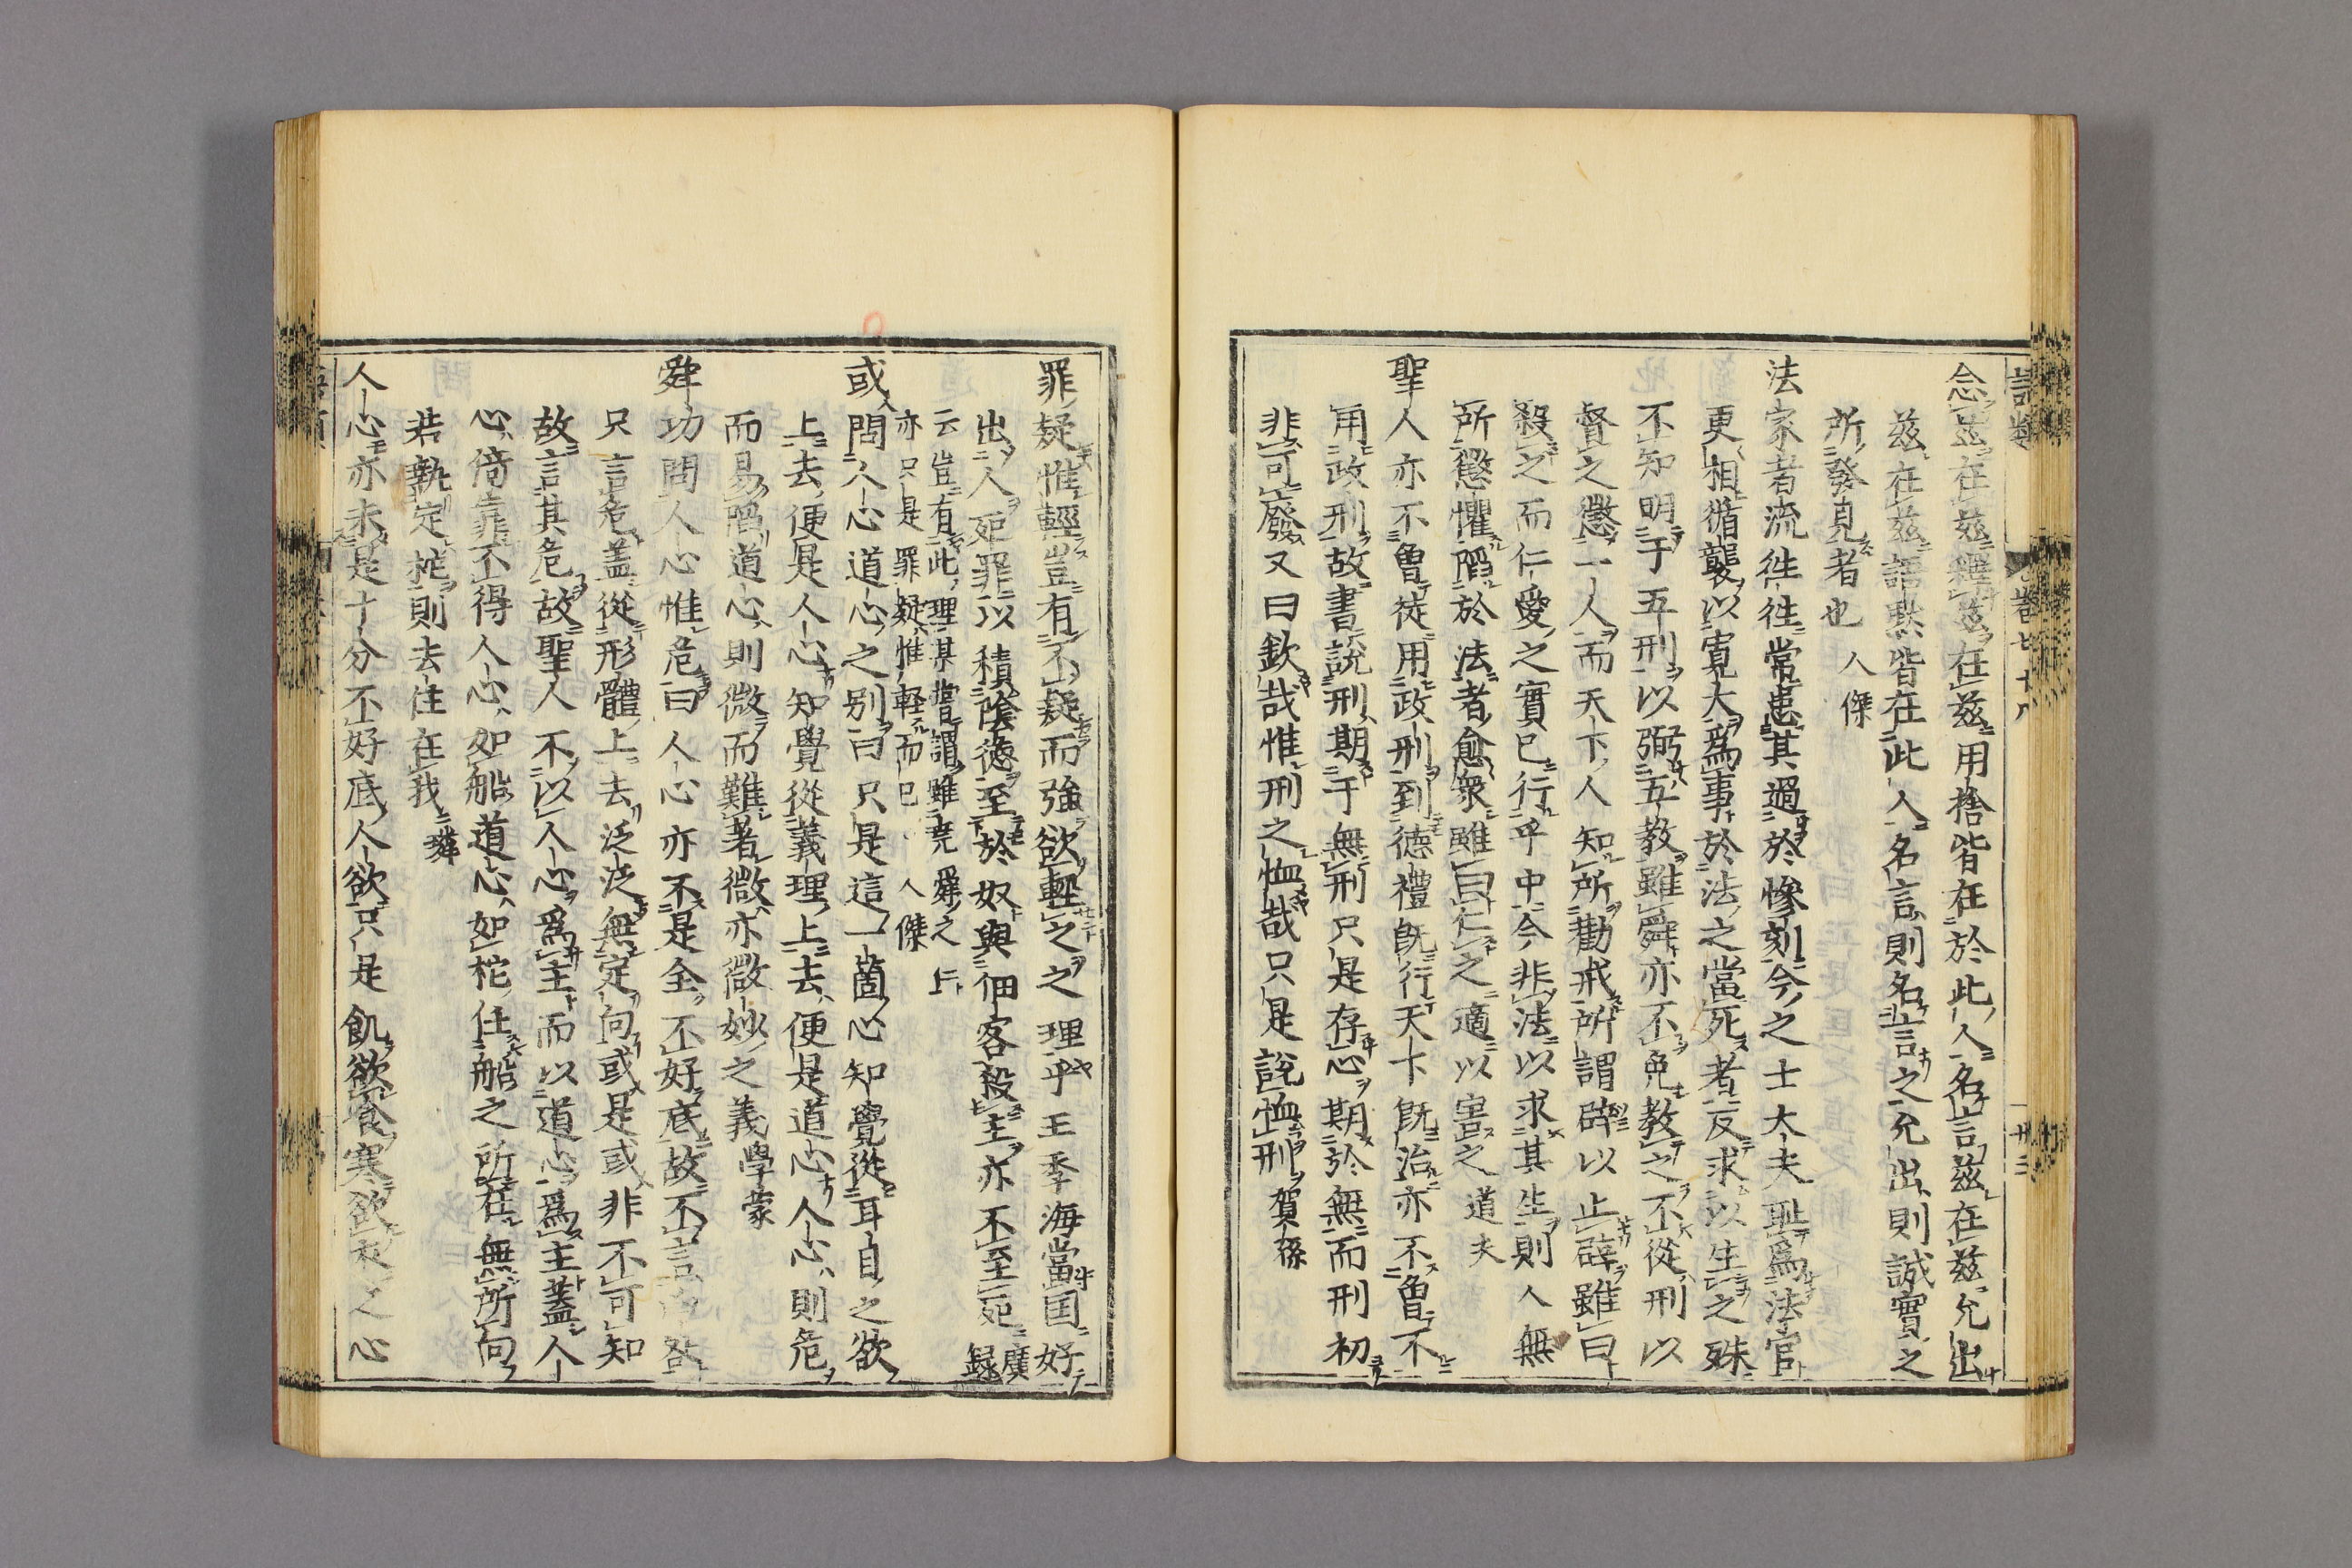 語類 卷七十八 廿三
念茲在茲釋茲在茲用捨皆在於此人名言茲在茲允出
茲在茲語默皆在此人名言則名言之允出則誠實之
所發見者也 人傑
法家者流徃徃常患其過於慘刻今之士大夫耻爲法官
更相循襲以寛大爲事於法之當死者反求以生之殊
不知明于五刑以弼五教雖舜亦不免教之不從刑以
督之懲一人而天下人知所勸戒所謂辟以止辟雖曰
殺之而仁愛之實已行乎中今非法以求其生則人無
所懲懼陷於法者愈衆雖曰仁之適以害之 道夫
聖人亦不曾徒用政刑到德禮既行天下既治亦不曾不
用政刑故書說刑期于無刑只是存心期於無而刑初
非可廢又曰欽哉惟刑之恤哉只是說恤刑 賀孫
罪疑惟輕豈有不疑而強欲輕之之理乎王季海當国好
出人死罪以積陰德至於奴與佃客殺主亦不至死 廣録
云豈有此理某嘗謂雖堯舜之上
亦只是罪疑惟軽而已 人傑
或問人心道心之別曰只是這一箇心知覺從耳目之欲
上去便是人心知覺從義理上去便是道心人心則危
而易陷道心則微而難著微亦微妙之義 學蒙
舜功問人心惟危曰人心亦不是全不好底故不言凶咎
只言危盖從形體上去泛泛無定向或是或非不可知
故言其危故聖人不以人心爲主而以道心爲主盖人
心倚靠不得人心如船道心如柁任船之所在無所向
若執定柁則去住在我 璘
人心亦未是十分不好底人欲只是飢欲食寒欲衣之心